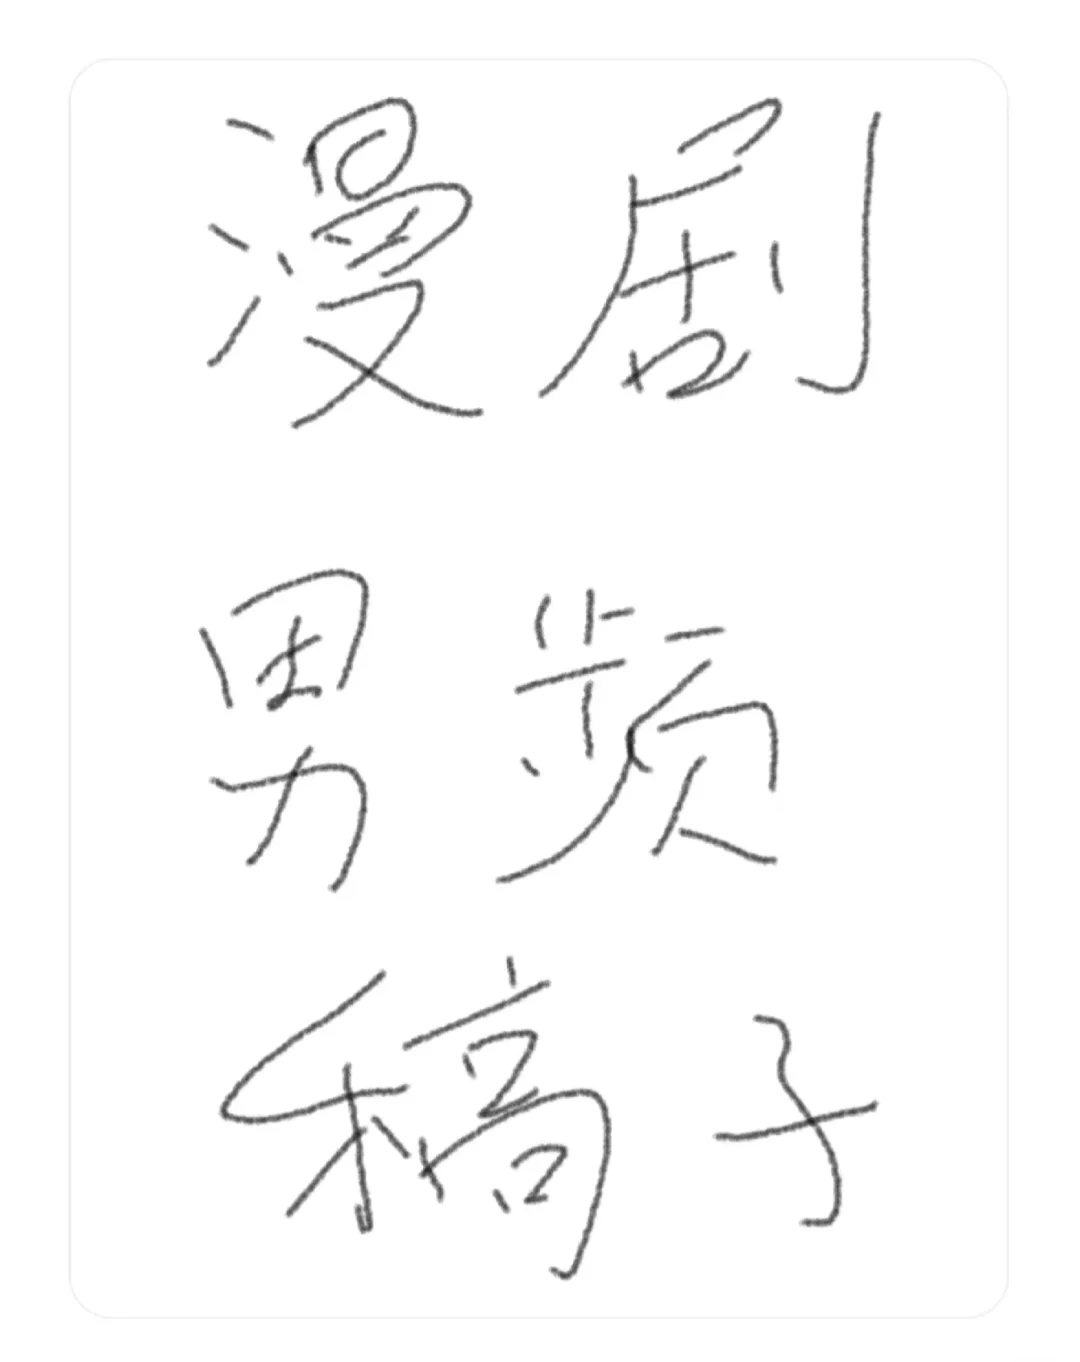 漫剧
男频
稿子